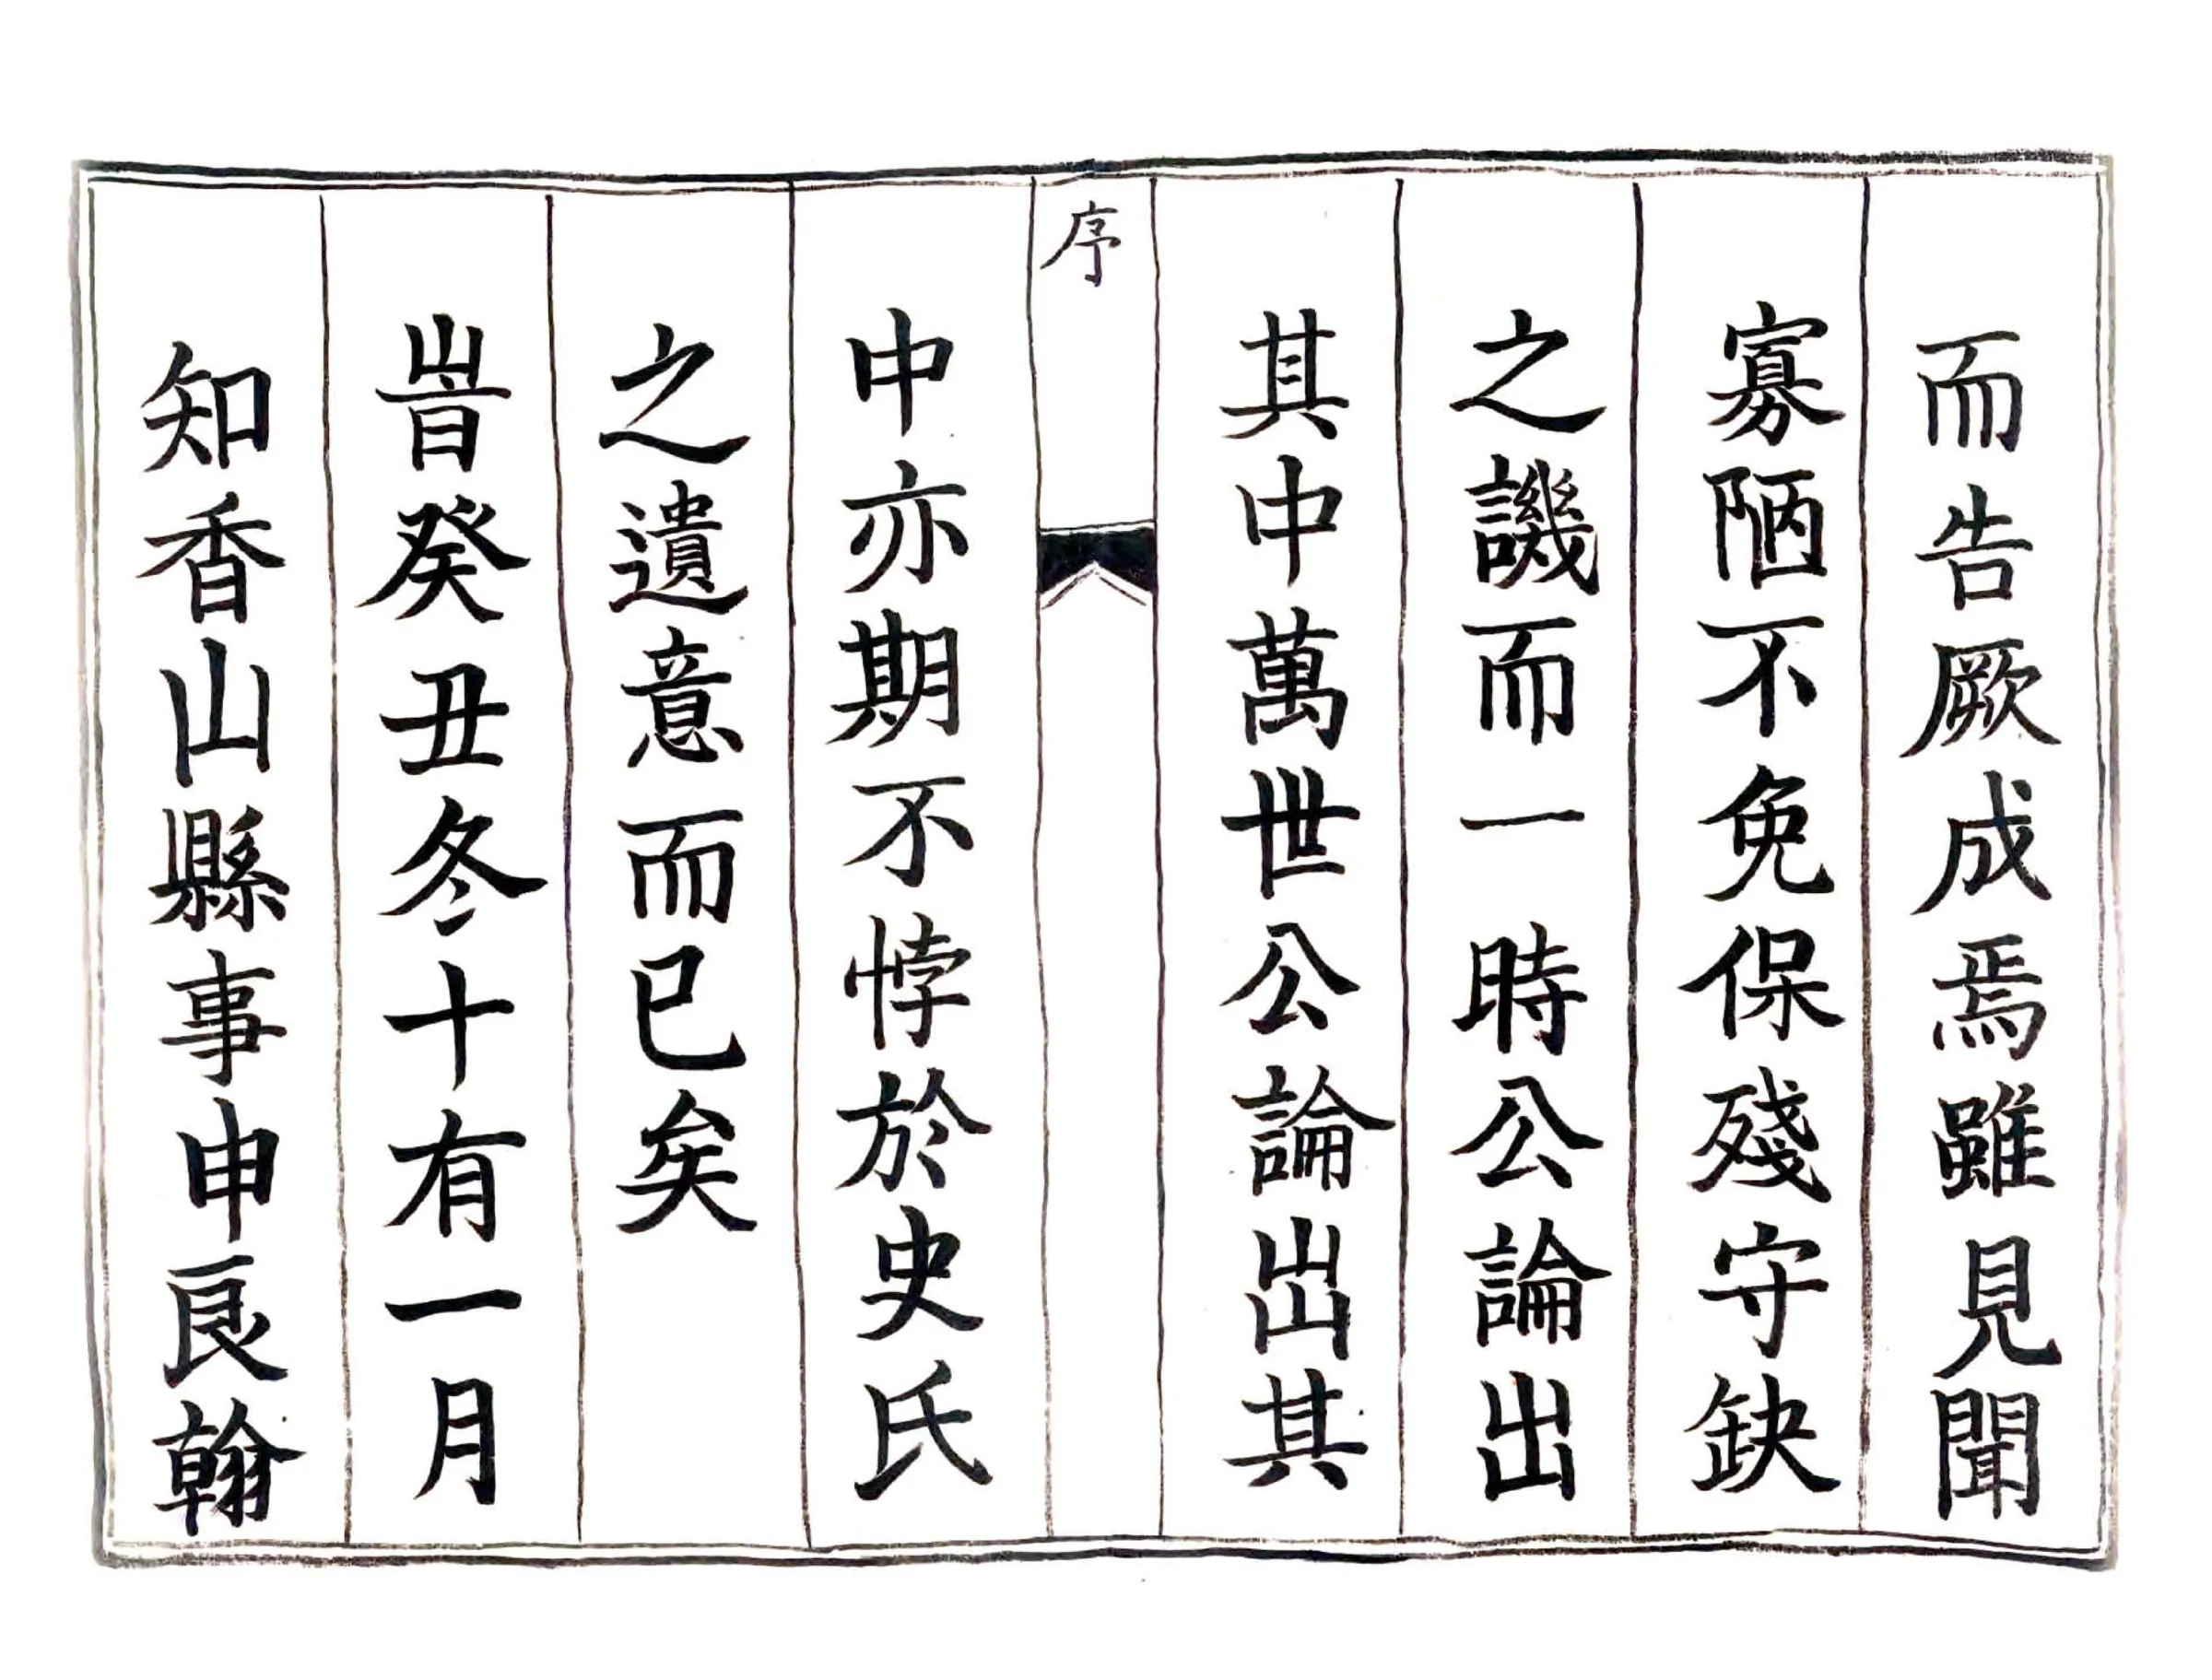 而告厥成焉雖見聞
寡陋不免保殘守缺
之譏而一時公論出
其中萬世公論出其
序
中亦期不悖於史氏
之遺意而已矣
旹癸丑冬十有一月
知香山縣事申良翰